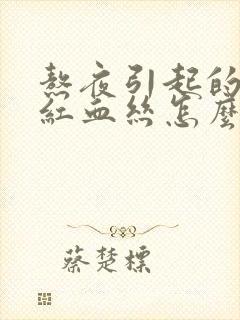 熬夜引起的
紅血絲怎麼
蔡楚標